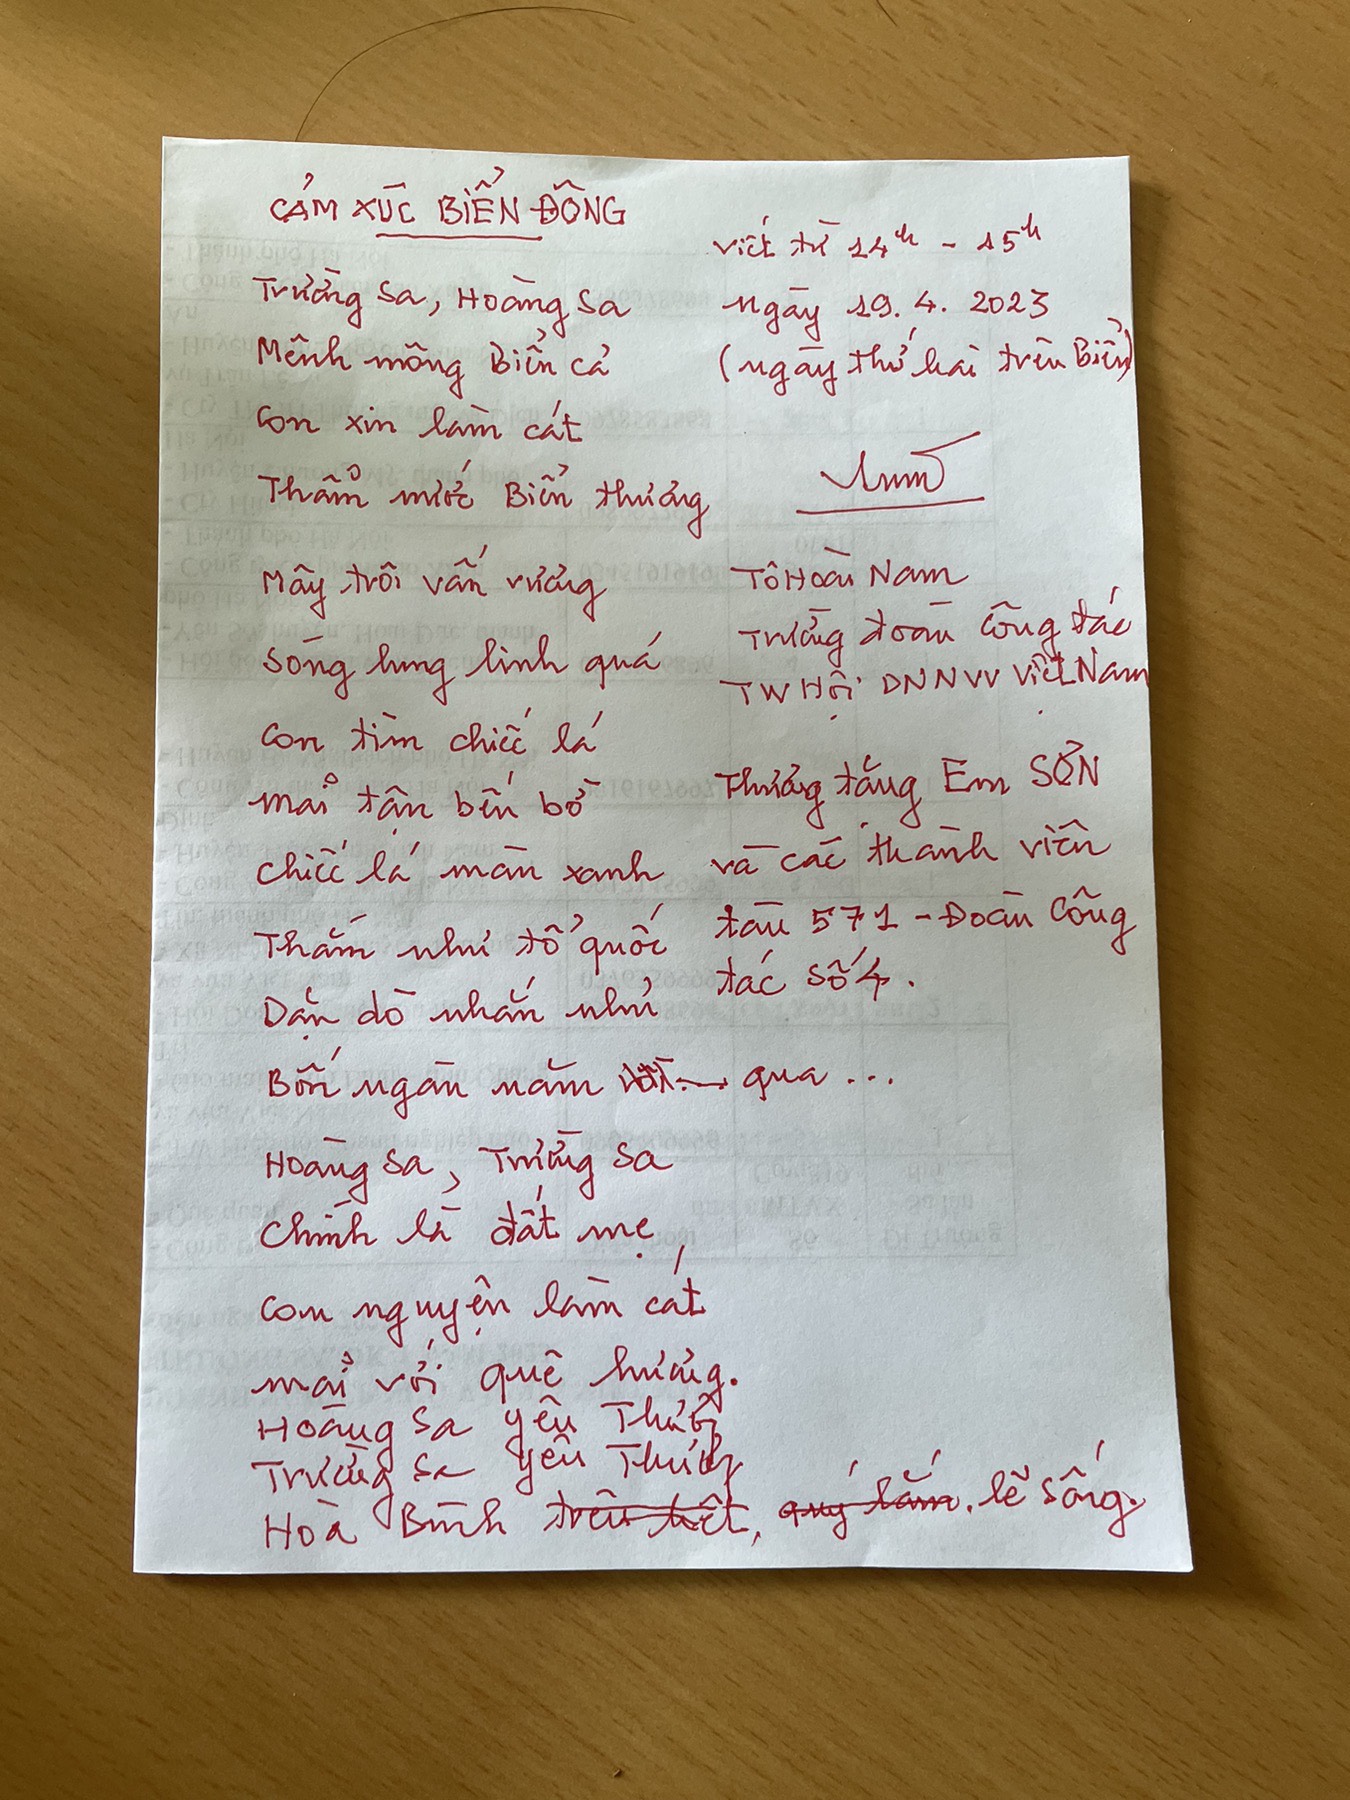 CẢM XÚC BIỂN ĐÔNG
Trường Sa, Hoàng Sa
Mênh mông Biển cả
Con xin làm cát
Thẩm nước Biển thương
Mây trôi vấn vương
Sóng lung linh quá
Con tìm chiếc lá
Mải tận bến bờ
Chiếc lá màu xanh
Thắm như tổ quốc
Dặn dò nhắn nhủ
Bốn ngàn năm qua ...
Hoàng Sa, Trường Sa
Chính là đất mẹ
Con nguyện làm cát
Mải với quê hương.
Hoàng Sa yêu Thương
Trường Sa yêu Thương
Hoà Bình trên hết, quý lắm. lẽ sống.
viết từ 14h - 15h
Ngày 19.4.2023
(ngày thứ hai trên Biển)
Tô Hoài Nam
Trưởng đoàn Công tác
TW Hội DNNVV Việt Nam
Thương tặng Em SƠN
và các thành viên
tàu 571 - Đoàn Công
tác số 4.